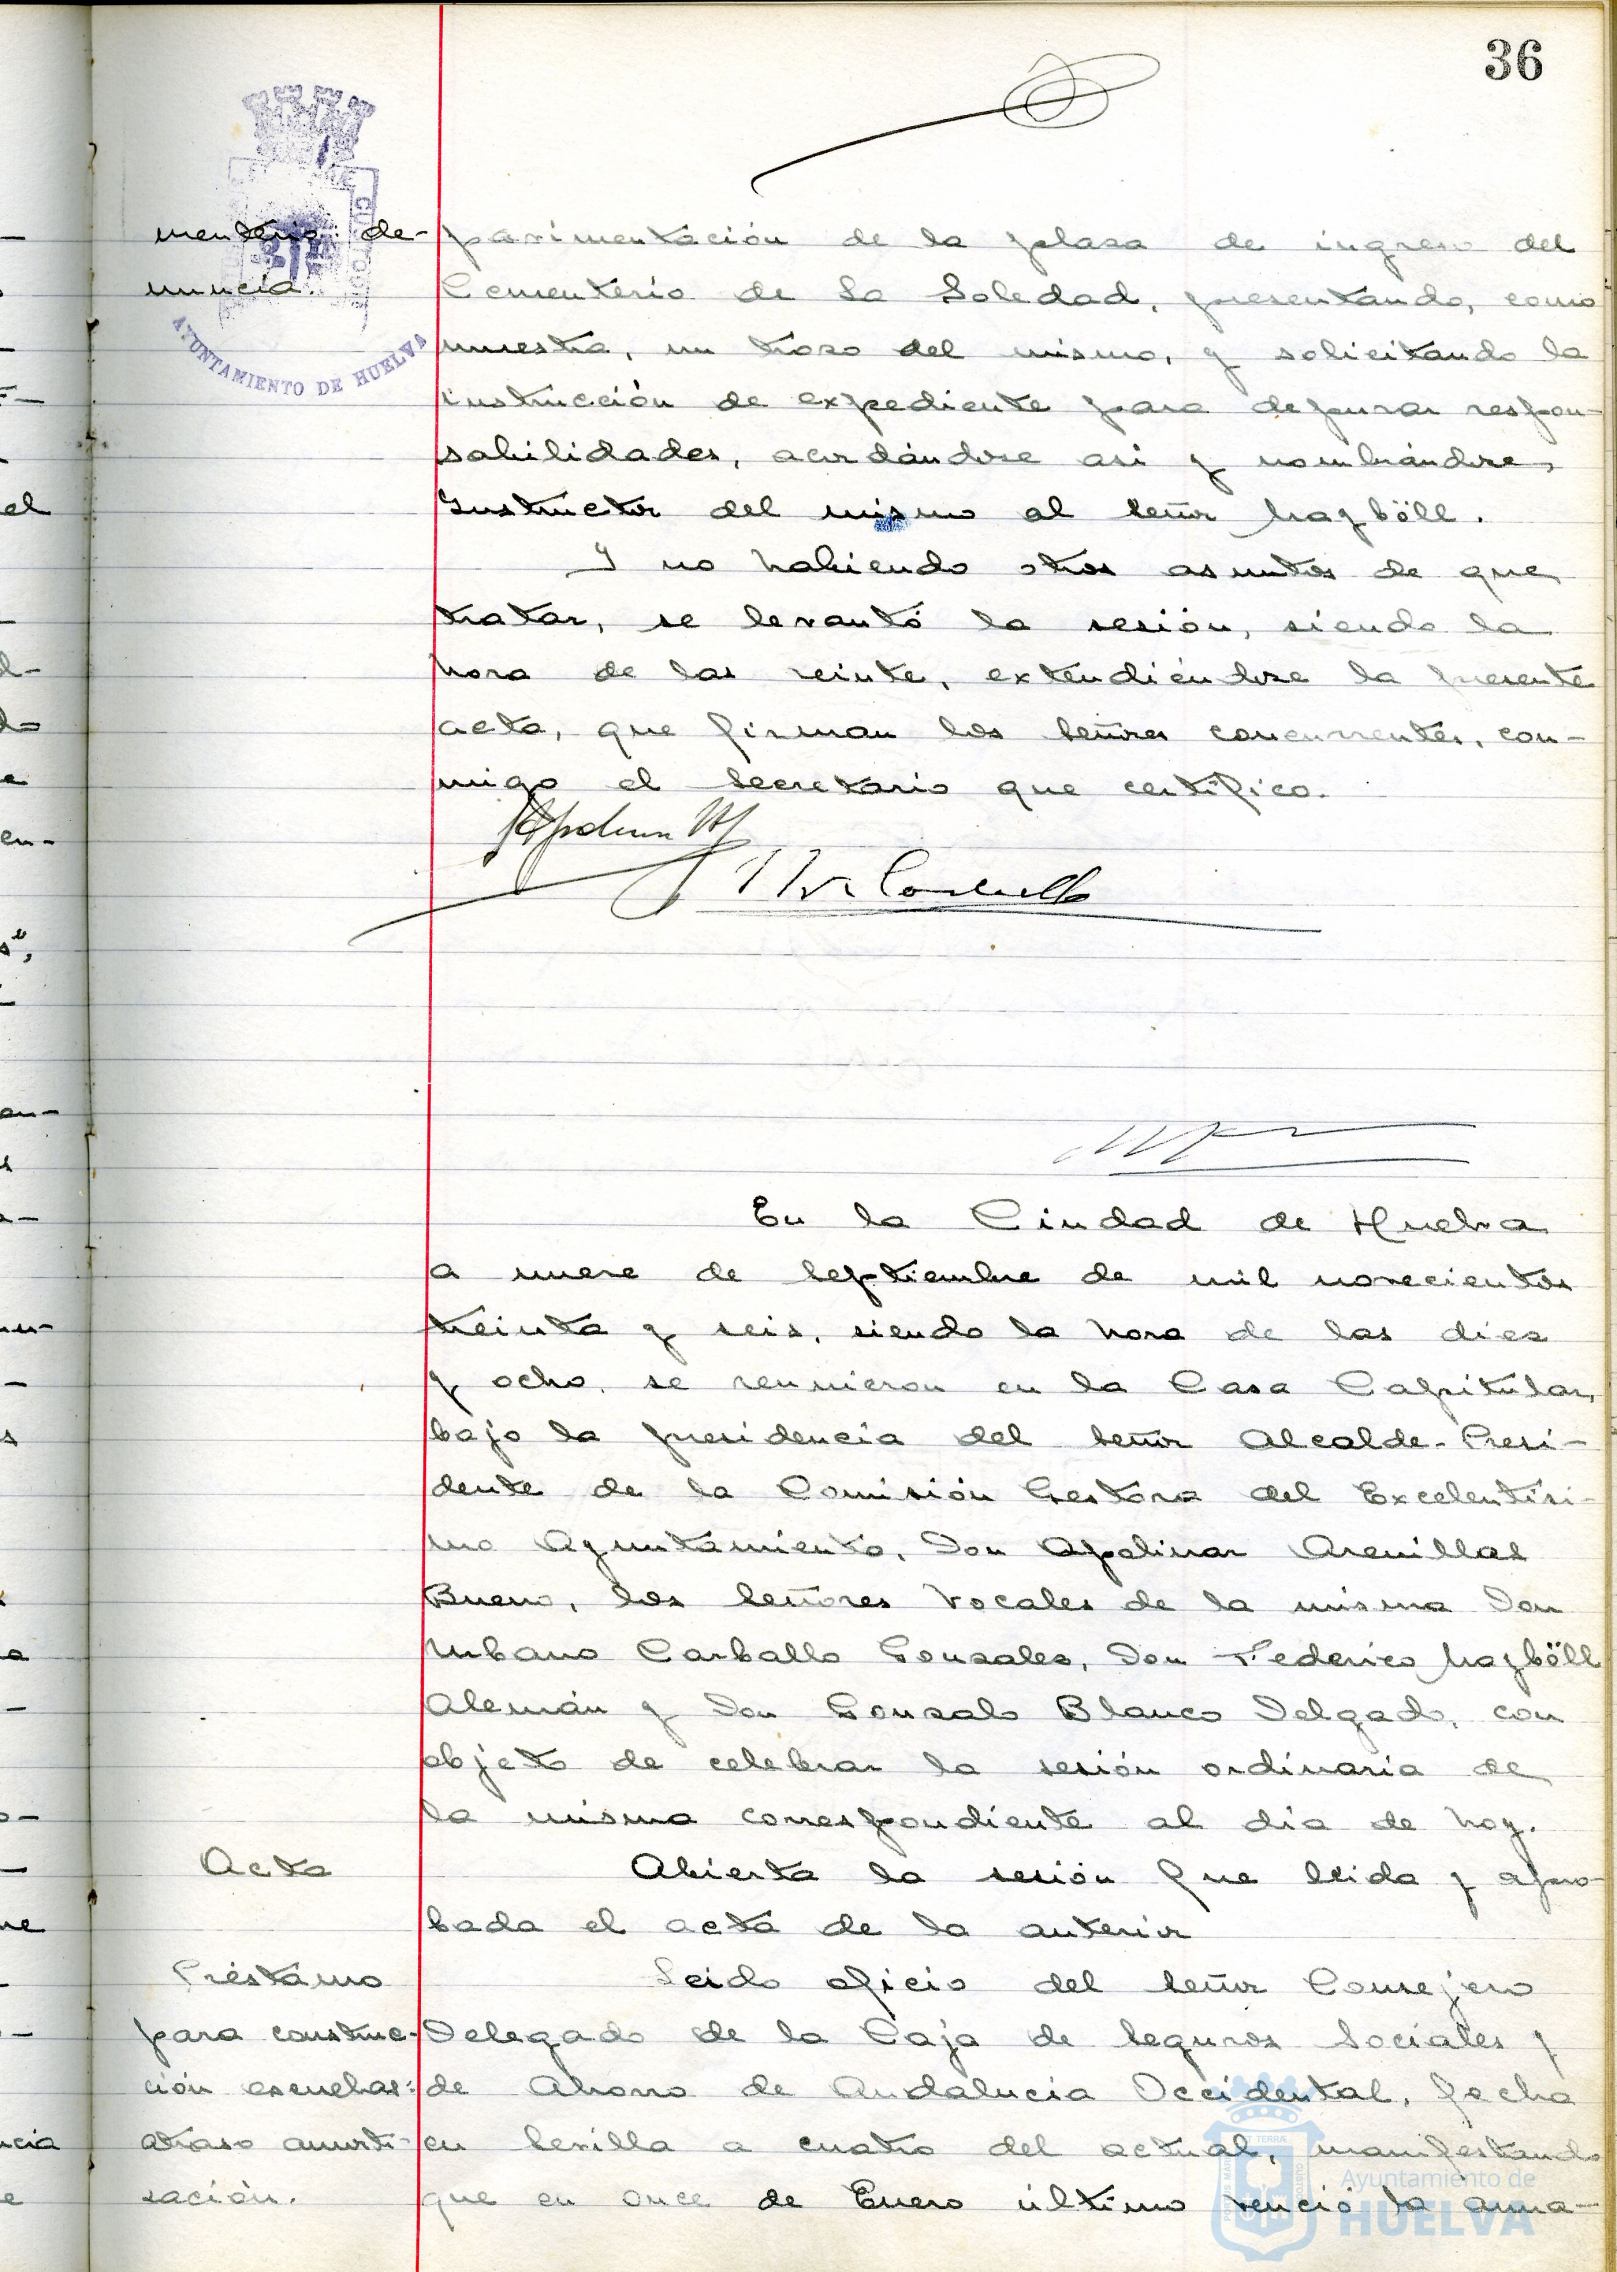 36
AYUNTAMIENTO DE HUELVA
menterio: de-
nuncia.
pavimentación de la plaza de ingreso del
Cementerio de La Soledad, presentando, como
muestra, un trozo del mismo, y solicitando la
instrucción de expediente para depurar respon-
sabilidades, acordándose asi y nombrándose,
Instructor del mismo al Señor Mayböll.
Y no habiendo otros asuntos de que
tratar, se levantó la sesión, siendo la
hora de las veinte, extendiéndose la presente
acta, que firman los Señores concurrentes, con-
migo el Secretario que certifico.
En la Ciudad de Huelva
a nueve de Septiembre de mil novecientos
treinta y seis, siendo la hora de las diez
y ocho, se reunieron en la Casa Capitular,
bajo la presidencia del Señor Alcalde-Presi-
dente de la Comisión Gestora del Excelentísi-
mo Ayuntamiento, Don Apolinar Arenillas
Bueno, los Señores Vocales de la misma Don
Urbano Carballo Gonzales, Don Federico Mayböll
Alemán y Don Gonzalo Blanco Delgado, con
objeto de celebrar la sesión ordinaria de
la misma correspondiente al dia de hoy.
Acta
Abierta la sesión fue leida y apro-
bada el acta de la anterior
Préstamo
para construc-
ción escuelas:
atraso amorti-
zación.
Leido oficio del Señor Consejero
Delegado de la Caja de Seguros Sociales y
de Ahorro de Andalucia Occidental, fecha
en Sevilla a cuatro del actual, manifestando
que en once de Enero último venció la anua-
Ayuntamiento de
HUELVA